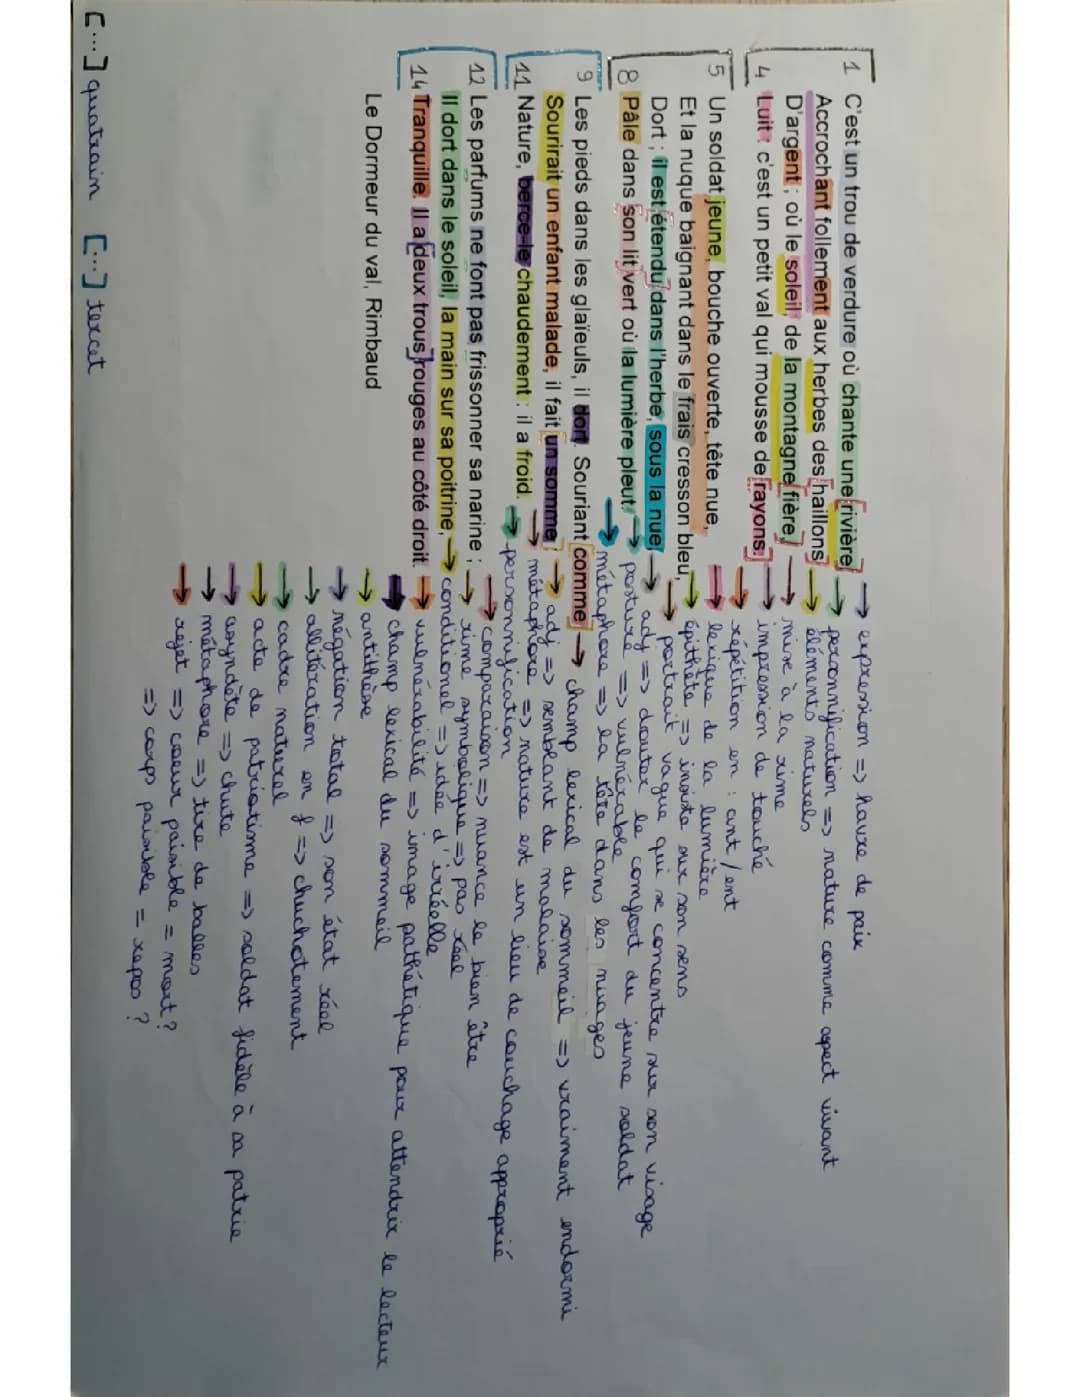 1 C'est un trou de verdure où chante une rivière
Accrochant follement aux herbes des haillons
D'argent ; où le soleil, de la montagne fière,
4 Luit : c'est un petit val qui mousse de rayons.
5 Un soldat jeune, bouche ouverte, tête nue,
Et la nuque baignant dans le frais cresson bleu,
Dort ; il est étendu dans l'herbe, sous la nue,
8 Pâle dans son lit vert où la lumière pleut.
9 Les pieds dans les glaïeuls, il dort. Souriant comme
Sourirait un enfant malade, il fait un somme :
11 Nature, berce-le chaudement : il a froid.
12 Les parfums ne font pas frissonner sa narine ;
Il dort dans le soleil, la main sur sa poitrine,
14 Tranquille. Il a deux trous rouges au côté droit.
Le Dormeur du val, Rimbaud
→ expression => havre de paix
→ personnification => nature comme aspect vivant
→ éléments naturels
→ mise à la rime
→ impression de touché
→ répétition en : ant / ent
→ lexique de la lumière
→ épithète => insiste sur son sens
→ portrait vague qui se concentre sur son visage
→ adj => douter le comfort du jeune soldat
→ posture => vulnérable
→ métaphore => la tête dans les nuages
→ champ lexical du sommeil => vraiment endormi
→ adj => semblant de malaise
→ métaphore => nature est un lieu de couchage approprié
→ personnification
→ comparaison => nuance le bien être
→ rime symbolique => pas réel
→ conditionnel => idée d'irréelle
→ vulnérabilité => image pathétique pour attendrir le lecteur
→ champ lexical du sommeil
→ antithèse
→ négation total => son état réel
→ allitération en f => chuchotement
→ cadre naturel
→ acte de patriotisme => soldat fidèle à sa patrie
→ asyndète => chute
→ métaphore => tire de balles
→ rejet => coeur paisible = mort ?
=> corps paisible = repos ?
[...] quatrain [...] tercet